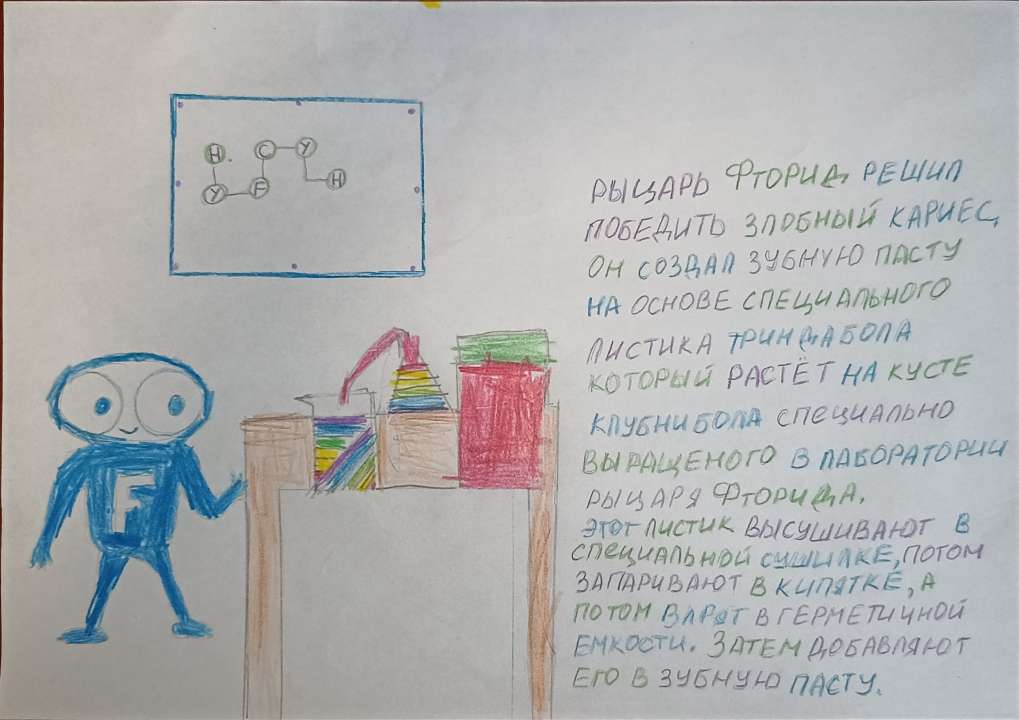 Н С У
У F Н
F
РЫЦАРЬ ФТОРИД, РЕШИЛ
ПОБЕДИТЬ ЗЛОБНЫЙ КАРИЕС,
ОН СОЗДАЛ ЗУБНУЮ ПАСТУ
НА ОСНОВЕ СПЕЦИАЛЬНОГО
ЛИСТИКА ТРИНДАБОЛА
КОТОРЫЙ РАСТЁТ НА КУСТЕ
КЛУБНИБОЛА СПЕЦИАЛЬНО
ВЫРАЩЕНОГО В ЛАБОРАТОРИИ
РЫЦАРЯ ФТОРИДА.
ЭТОТ ЛИСТИК ВЫСУШИВАЮТ В
СПЕЦИАЛЬНОЙ СУШИЛКЕ, ПОТОМ
ЗАПАРИВАЮТ В КИПЯТКЕ, А
ПОТОМ ВАРЯТ В ГЕРМЕТИЧНОЙ
ЕМКОСТИ. ЗАТЕМ ДОБАВЛЯЮТ
ЕГО В ЗУБНУЮ ПАСТУ.